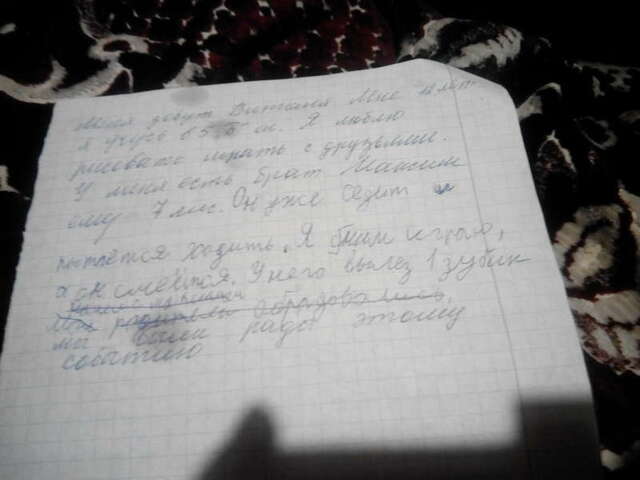 Меня зовут Виталя Мне 12 лет
я учусь в 5 б кл. Я люблю
рисовать играть с друзьями.
У меня есть брат Максим
ему 7 мес. Он уже седит и
пытается ходить. Я с ним играю,
а он смеётся. У него вылез 1 зубик
родители обрадовались,
мы были рады этому
событию